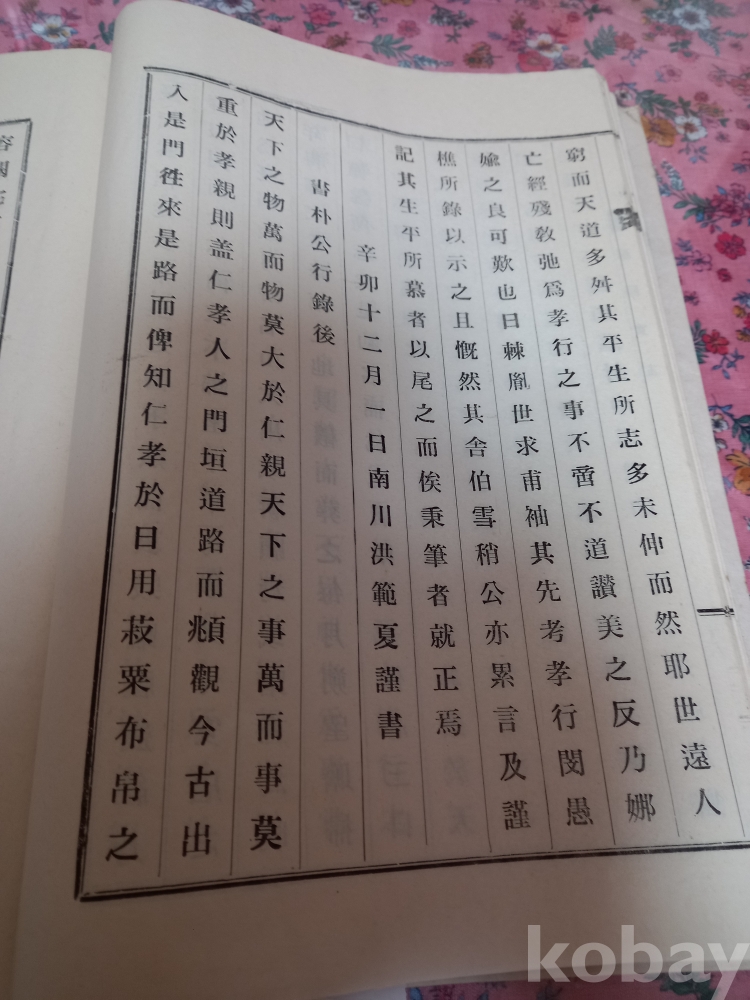 窮而天道多舛其平生所志多未伸而然耶世遠人
亡經殘敎弛爲孝行之事不啻不道讚美之反乃娜
婾之良可歎也日棘胤世求甫袖其先考孝行閔愚
樵所錄以示之且慨然其舍伯雪稍公亦累言及謹
記其生平所慕者以尾之而俟秉筆者就正焉
辛卯十二月一日南川洪範夏謹書
書朴公行錄後
天下之物萬而物莫大於仁親天下之事萬而事莫
重於孝親則盖仁孝人之門垣道路而頫觀今古出
入是門徃來是路而俾知仁孝於日用菽粟布帛之
kobay